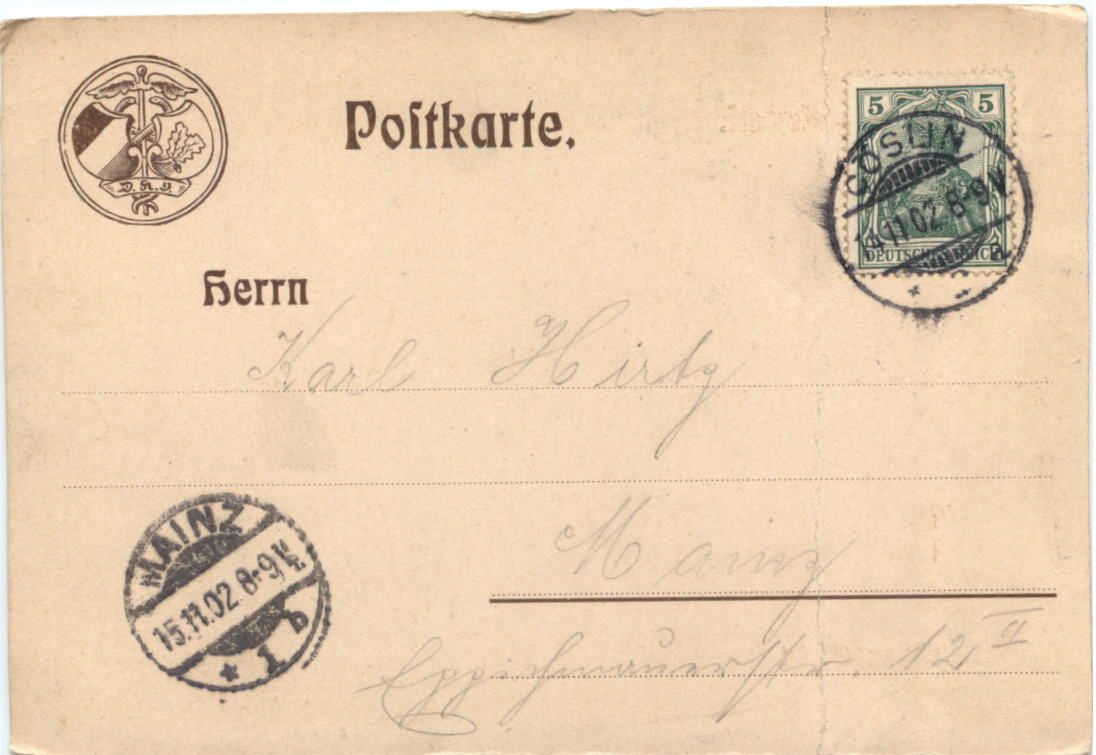 Poſtkarte.
5 5
CÖSLIN
14.11.02 8-9V.
DEUTSCHES REICH
D. H. V.
Herrn
Karl Hirtz
Mainz
MAINZ
15.11.02 8-9V.
* 1 b
12 II